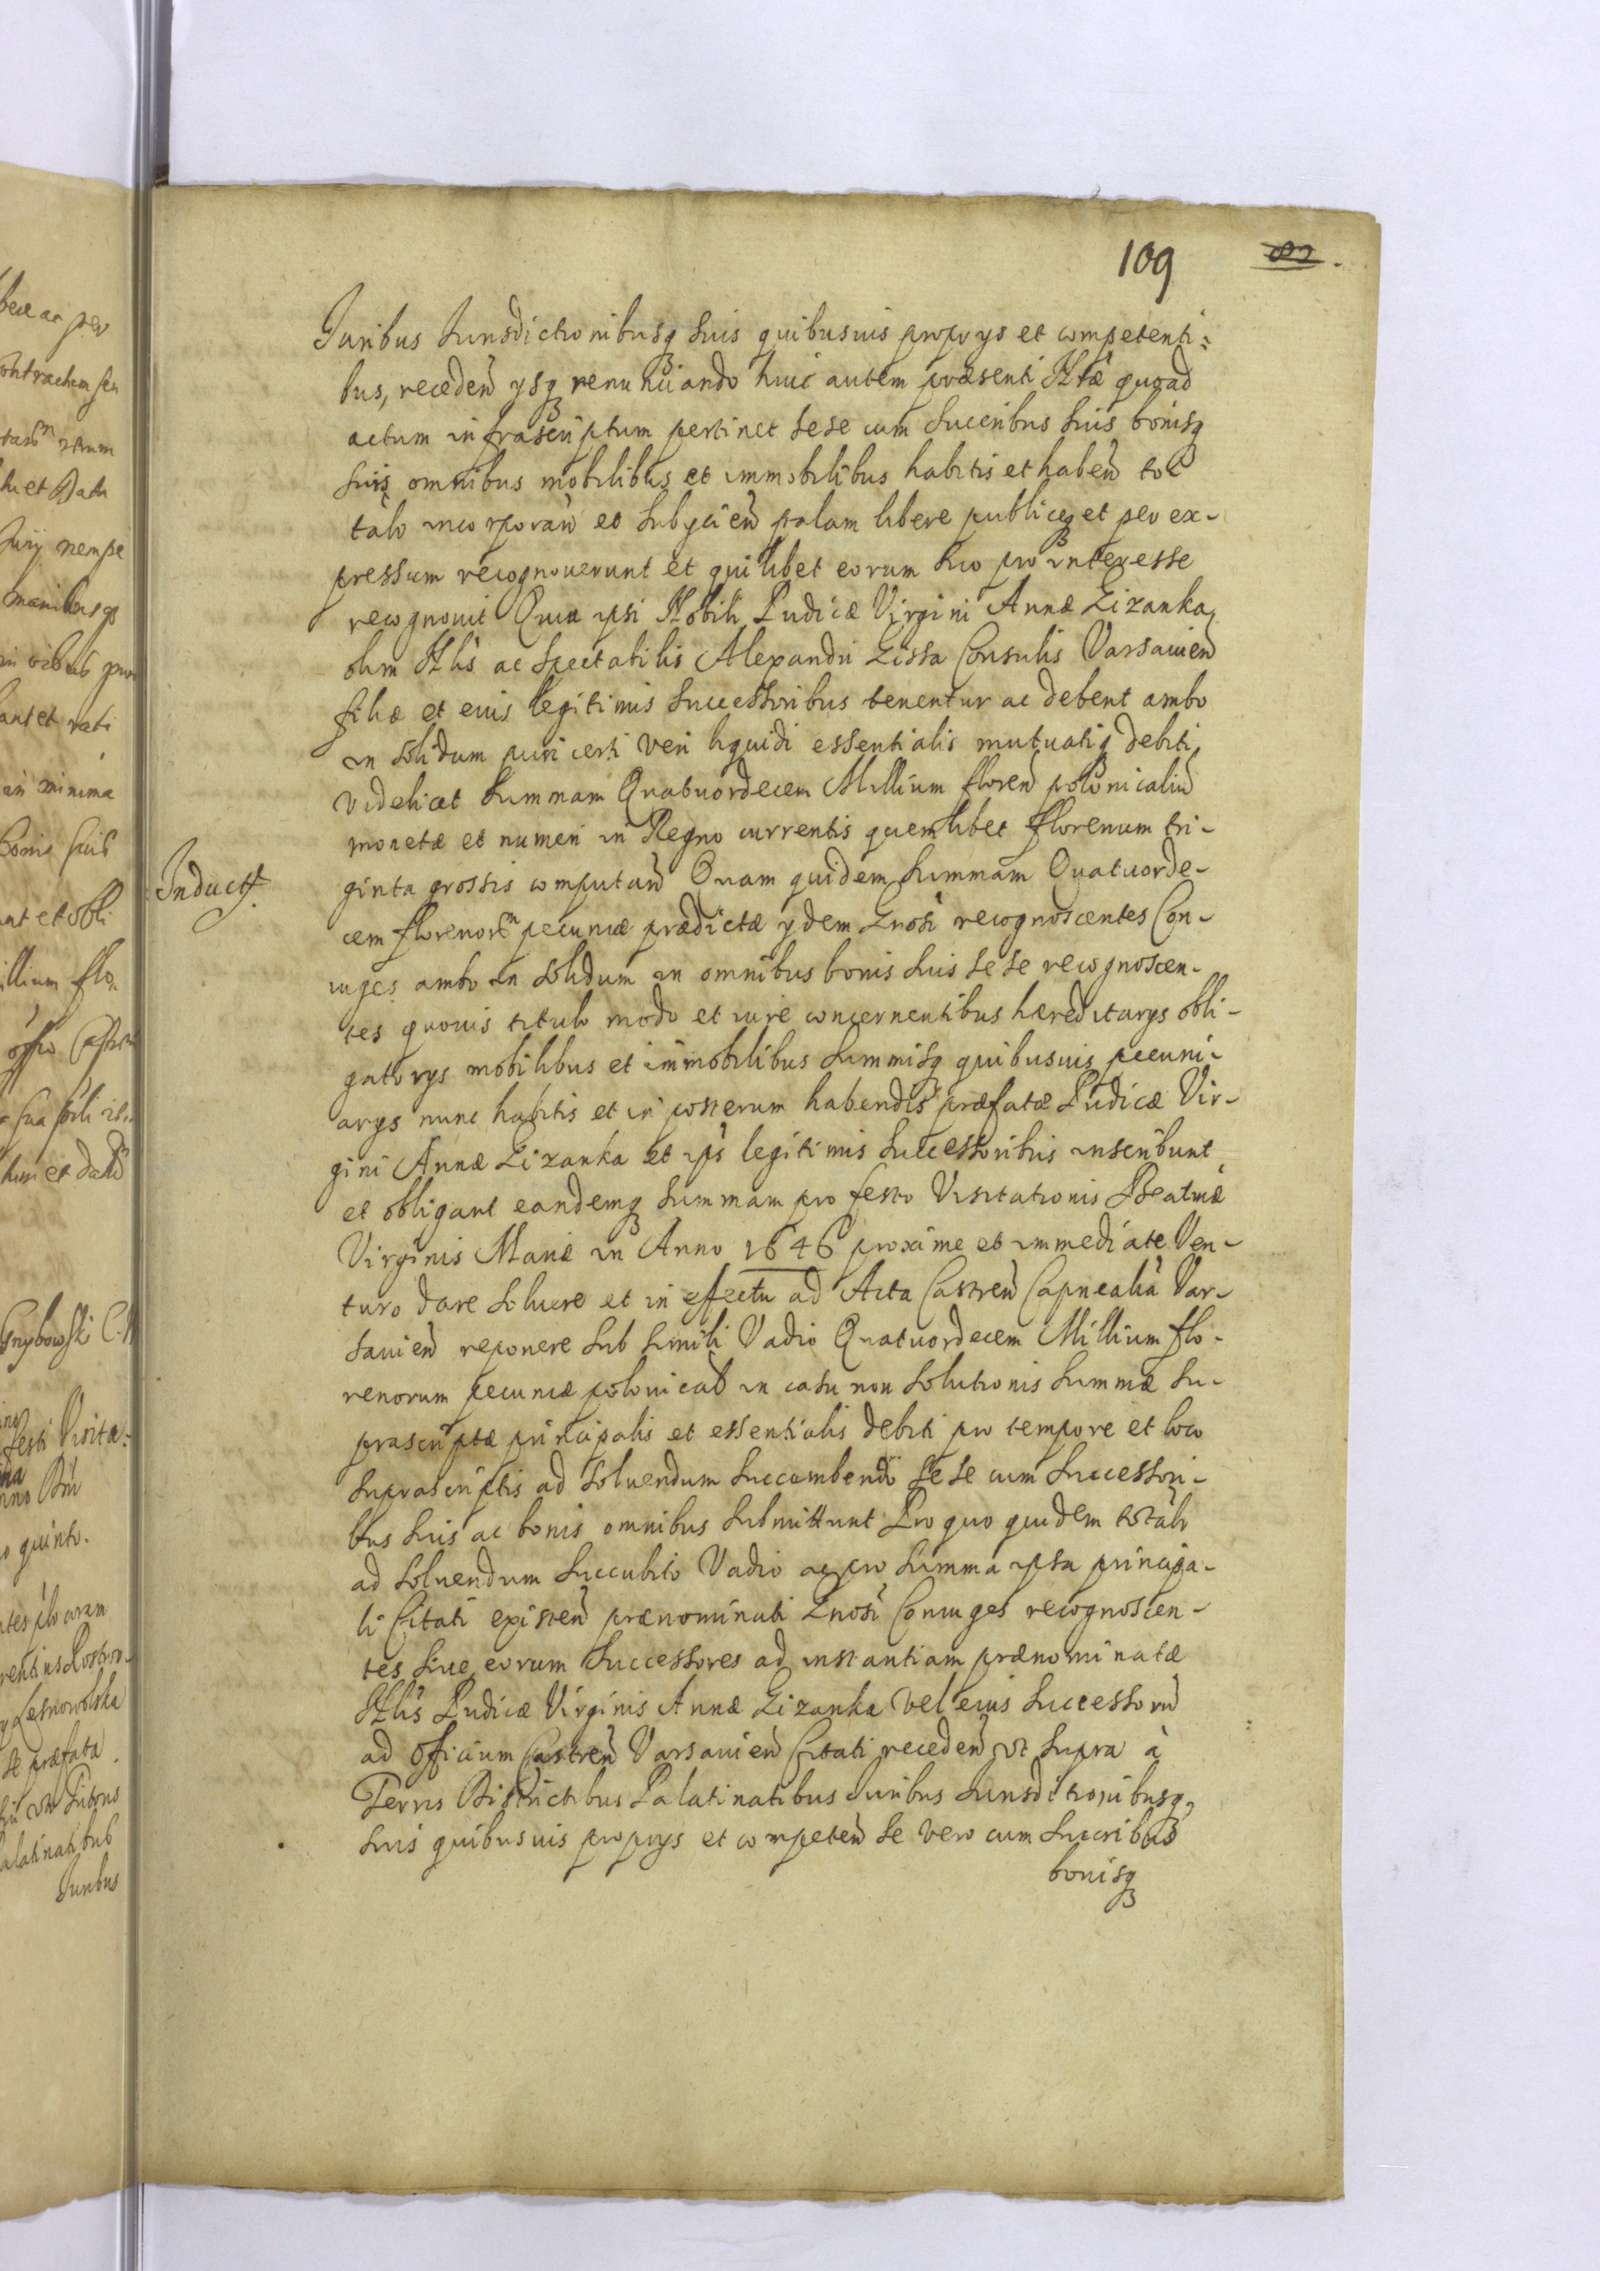 109
82.
Juribus Jurisdictionibusq suis quibusuis proprys et competenti=
bus, recedeñ ysq renunciando huic autem præsenti quoad
actum infrascriptum pertinet sese cum succribus suis bonisq
suis omnibus mobilibus et immobilibus habitis et habeñ to
talr incorporañ et subycieñ palam libere publiceq et per ex-
pressum recognouerunt et quilibet eorum suo pro interesse
recognouit Quia ipsi Nobili Pudicæ Virgini Annæ Gizanka
olim Nlis ac Spectabilis Alexandri Gissa Consulis Varsauień
filiæ et eius legitimis successoribus tenentur ac debent ambo
in solidum puri certi Veri liquidi essentialis mutuatiq debiti
videlicet Summam Quatuordecem Millium floreñ polonicaliũ
monetæ et numeri in Regno currentis quemlibet florenum tri-
Induct.
ginta grossis computañ Quam quidem summam Quatuorde-
cem florenorm pecuniæ prædictæ ydem Gnosi recognoscentes Con-
iuges ambo in solidum in omnibus bonis suis sese recognoscen-
tes quouis titulo modo et iure concernentibus hæreditarys obli-
gatorys mobilibus et immobilibus summisq quibusuis pecuni-
arys nunc habitis et in posterum habendis præfatæ Pudicæ Vir-
gini Annæ Gizanka et ips legitimis successoribus inscribunt
et obligant eandemq summam pro festo Visitationis Beatmæ
Virginis Mariæ in Anno 1646 proxime et immediate Ven-
turo dare soluere et in efectu ad Acta Castreñ Capnealia Var-
sauień reponere sub simili Vadio Quatuordecem Millium flo-
renorum pecuniæ polonical in casu non solutionis summæ su-
prascriptæ principalis et essentialis debiti pro tempore et loco
suprascriptis ad soluendum succumbendo sese cum successori-
bus suis ac bonis omnibus submittunt Pro quo quidem totalr
ad soluendum succubito Vadio ac pro summa ipsa principa-
li Citati existeñ prænominati Gnosi Coniuges recognoscen-
tes siue eorum successores ad instantiam prænominatæ
Nlis Pudicæ Virginis Annæ Gizanka vel eius successorũ
ad officium Castreñ Varsauień Citati recedeñ ut supra à
Terris Districtibus Palatinatibus Juribus Jurisditionibusq
suis quibusuis proprys et competeñ se vero cum succribus
bonisq